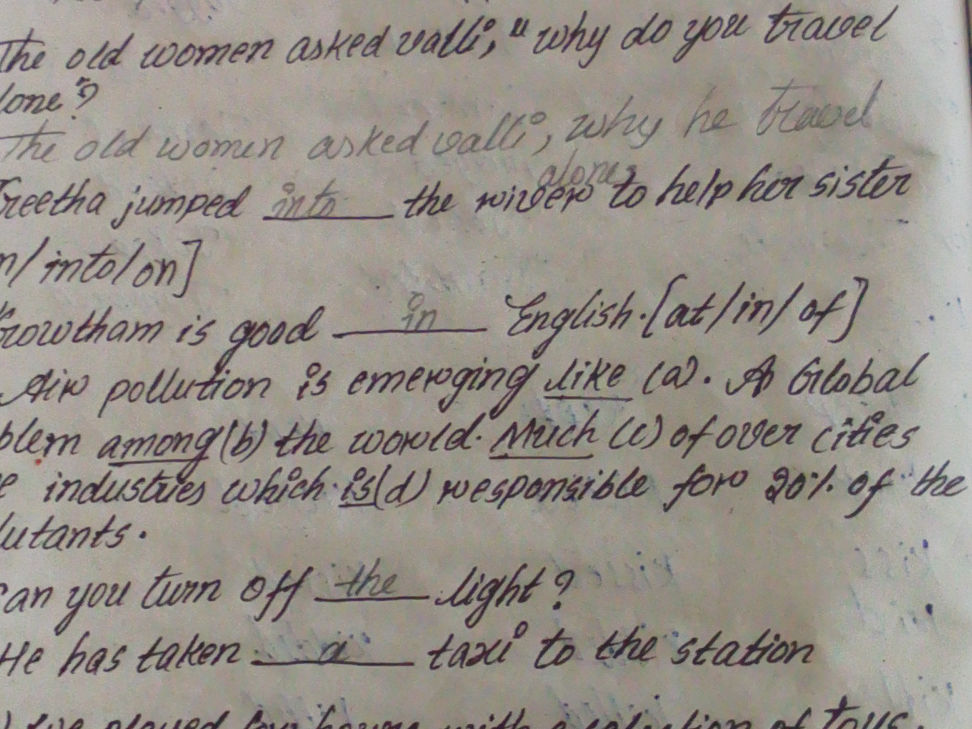 The old women asked valli, "why do you travel
lone"?
The old women asked valli, why he travel
alone.
reetha jumped into the river to help her sister
n/into/on]
rowtham is good in English. [at/in/of]
Air pollution is emerging like (a). A Global
blem among (b) the world. Much (c) of over cities
e industries which is (d) responsible for 20% of the
lutants.
can you turn off the light?
He has taken a taxi to the station
played hours with a collection of toys.